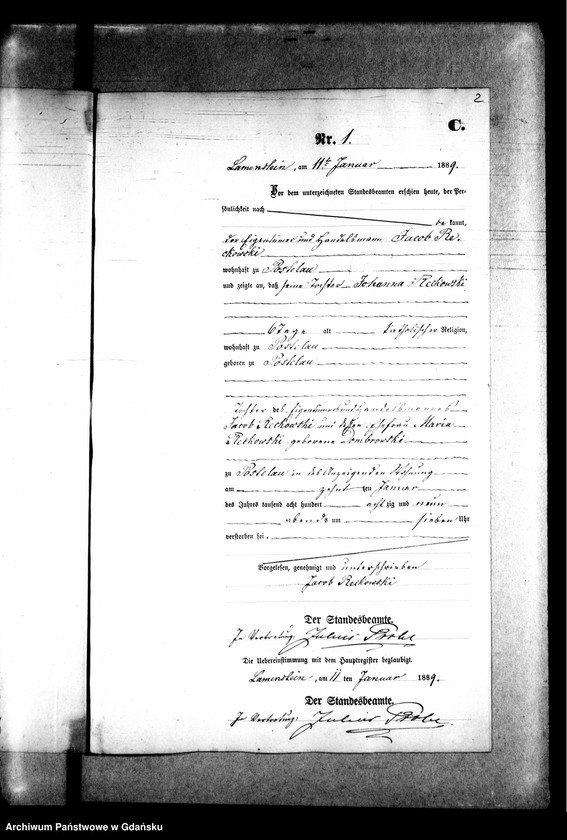 2
C.
Nr. 1.
Lamenstein, am 11te Januar 1889.
Vor dem unterzeichneten Standesbeamten erschien heute, der Per-
sönlichkeit nach
be kannt,
der Eigentümer und Handelsmann Jacob Re-
ckowski
wohnhaft zu Postelau
und zeigte an, daß seine Tochter Johanna Reckowski
6 Tage alt katholischer Religion,
wohnhaft zu Postelau
geboren zu Postelau
Tochter des Eigentümer und Handelsmannes
Jacob Reckowski und dessen Ehefrau Maria
Reckowski geborene Dombrowski
zu Postelau in des Anzeigenden Wohnung
am zehnt ten Januar
des Jahres tausend acht hundert acht zig und neun
abends um sieben Uhr
verstorben sei.
Vorgelesen, genehmigt und unterschrieben
Jacob Reckowski
Der Standesbeamte.
In Vertretung: Julius
Die Uebereinstimmung mit dem Hauptregister beglaubigt.
Lamenstein, am 11 ten Januar 1889.
Der Standesbeamte.
In Vertretung: Julius
Archiwum Państwowe w Gdańsku